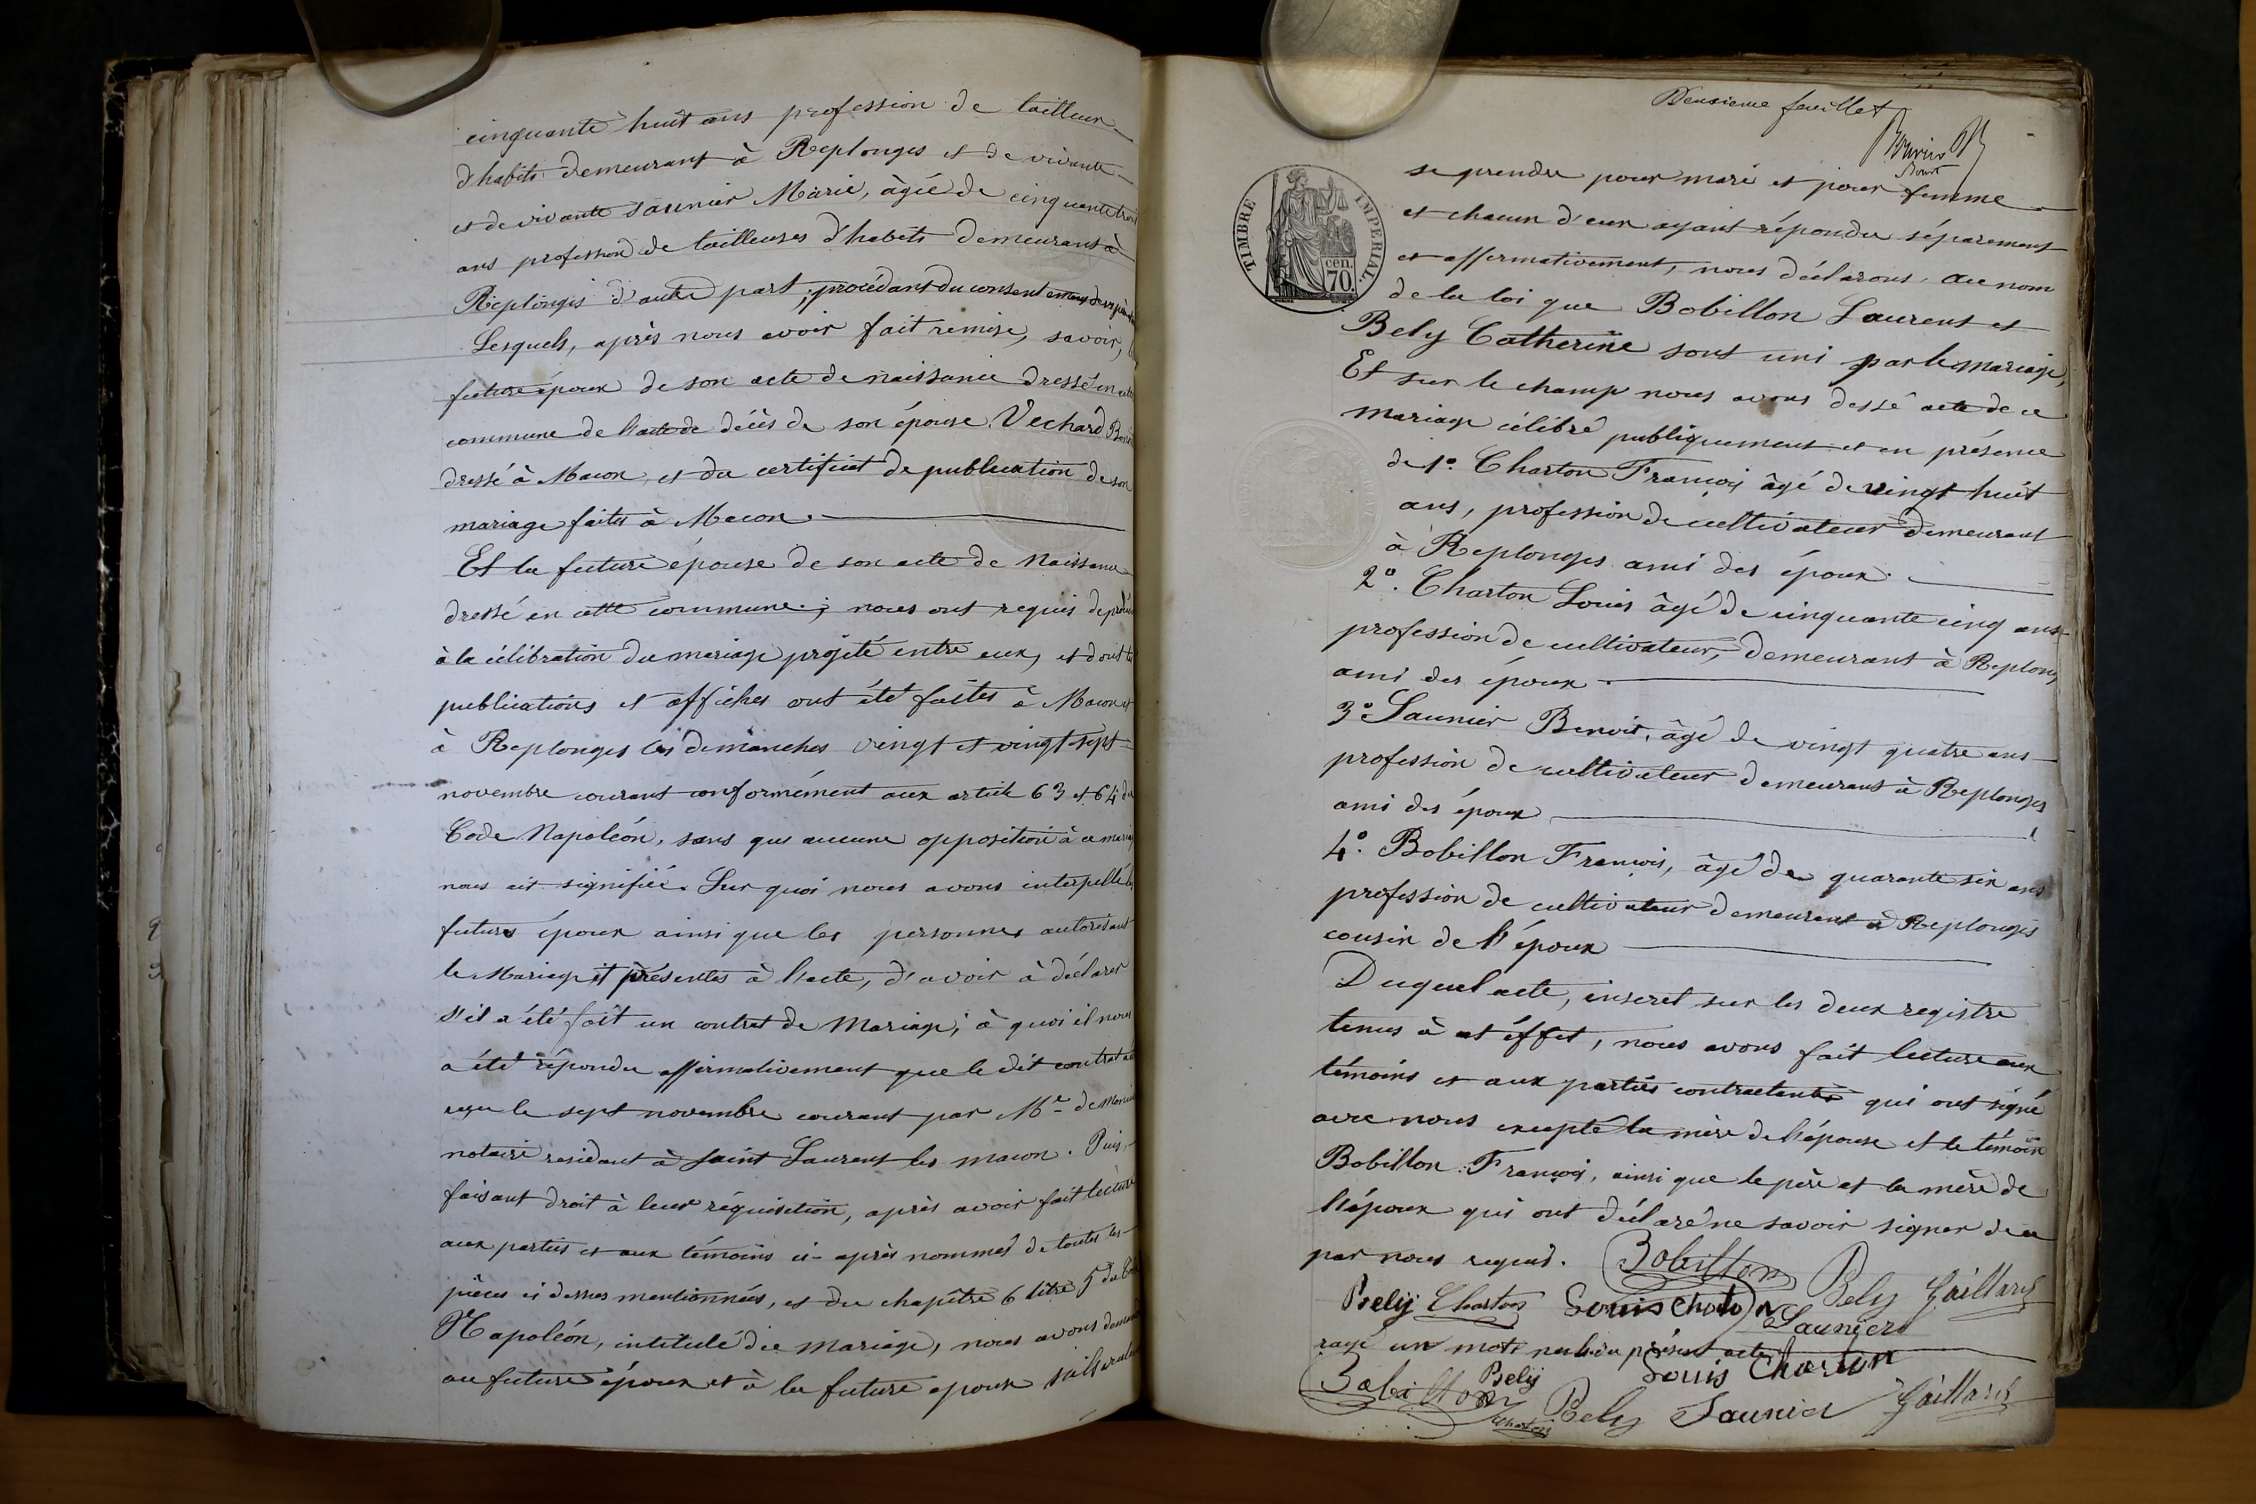 cinquante huit ans profession de tailleur
d'habits demeurant à Replonges et de vivante
et de vivante Saunier Marie, âgée de cinquante trois
ans profession de tailleuses d'habits demeurant à
Replonges d'autre part, procédant du consentement de ses père
Lesquels, après nous avoir fait remise, savoir, le
future époux de son acte de naissance dressé en cette
commune de l'acte de décès de son épouse Vechard
dressé à Macon, et du certificat de publication de son
mariage faites à Macon
Et la future épouse de son acte de Naissance
dressé en cette commune; nous ont requis de procéder
à la célébration du mariage projeté entre eux, et dont les
publications et affiches ont été faites à Macon et
à Replonges les dimanches vingt et vingt sept
novembre courant conformément aux article 63 et 64 du
Code Napoléon, sans que aucune opposition à ce mariage
nous ait signifiée. Sur quoi nous avons interpellé les
futurs époux ainsi que les personnes autorisant
le Mariage et présentes à l'acte, d'avoir à déclarer
s'il a été fait un contrat de Mariage; à quoi il nous
a été répondu affirmativement que le dit contrat a été
reçu le sept novembre courant par Me
notaire residant à Saint Laurent les macon. Puis,
faisant droit à leur réquisition, après avoir fait lecture
aux parties et aux témoins ci-après nommés de toutes les
pièces ci dessus mentionnées, et du chapitre 6 titre 5 du Code
Napoléon, intitulé du Mariage, nous avons demandé
au future époux et à la future epoux s'ils veulent
Deuxieme feuillet
TIMBRE IMPERIAL.
cen.
70.
se prendre pour mari et pour femme
et chacun d'eux ayant répondu séparement
et affirmativement, nous déclarons au nom
de la loi que Bobillon Laurent et
Bely Catherine sont uni par le mariage,
Et sur le champ nous avons dessé acte de ce
mariage célébré publiquement et en présence
de 1º. Charton François âgé de vingt huit
ans, profession de cultivateur demeurant
à Replonges ami des époux.
2º. Charton Louis âgé de cinquante cinq ans
profession de cultivateur, demeurant à Replonges
ami des époux.
3º Saunier Benoit, âgé de vingt quatre ans
profession de cultivateur demeurant à Replonges
ami des époux
4º. Bobillon François, âgé de quarante six ans
profession de cultivateur demeurant à Replonges
cousin de l'époux
Duquel acte, inscret sur les deux registre
tenus à et éffet, nous avons fait lecture aux
témoins et aux parties contractantes qui ont signé
avec nous excepté la mère de l'épouse et le témoin
Bobillon François, ainsi que le père et la mère de
l'époux qui ont déclaré ne savoir signer de ce
par nous requis. Bobillon Bely Gaillard
Bely Charton Louis Choton Saunier
rayé un mot nul du présent acte
Bobillon Bely Louis Charton
Charton Bely Saunier Gaillard